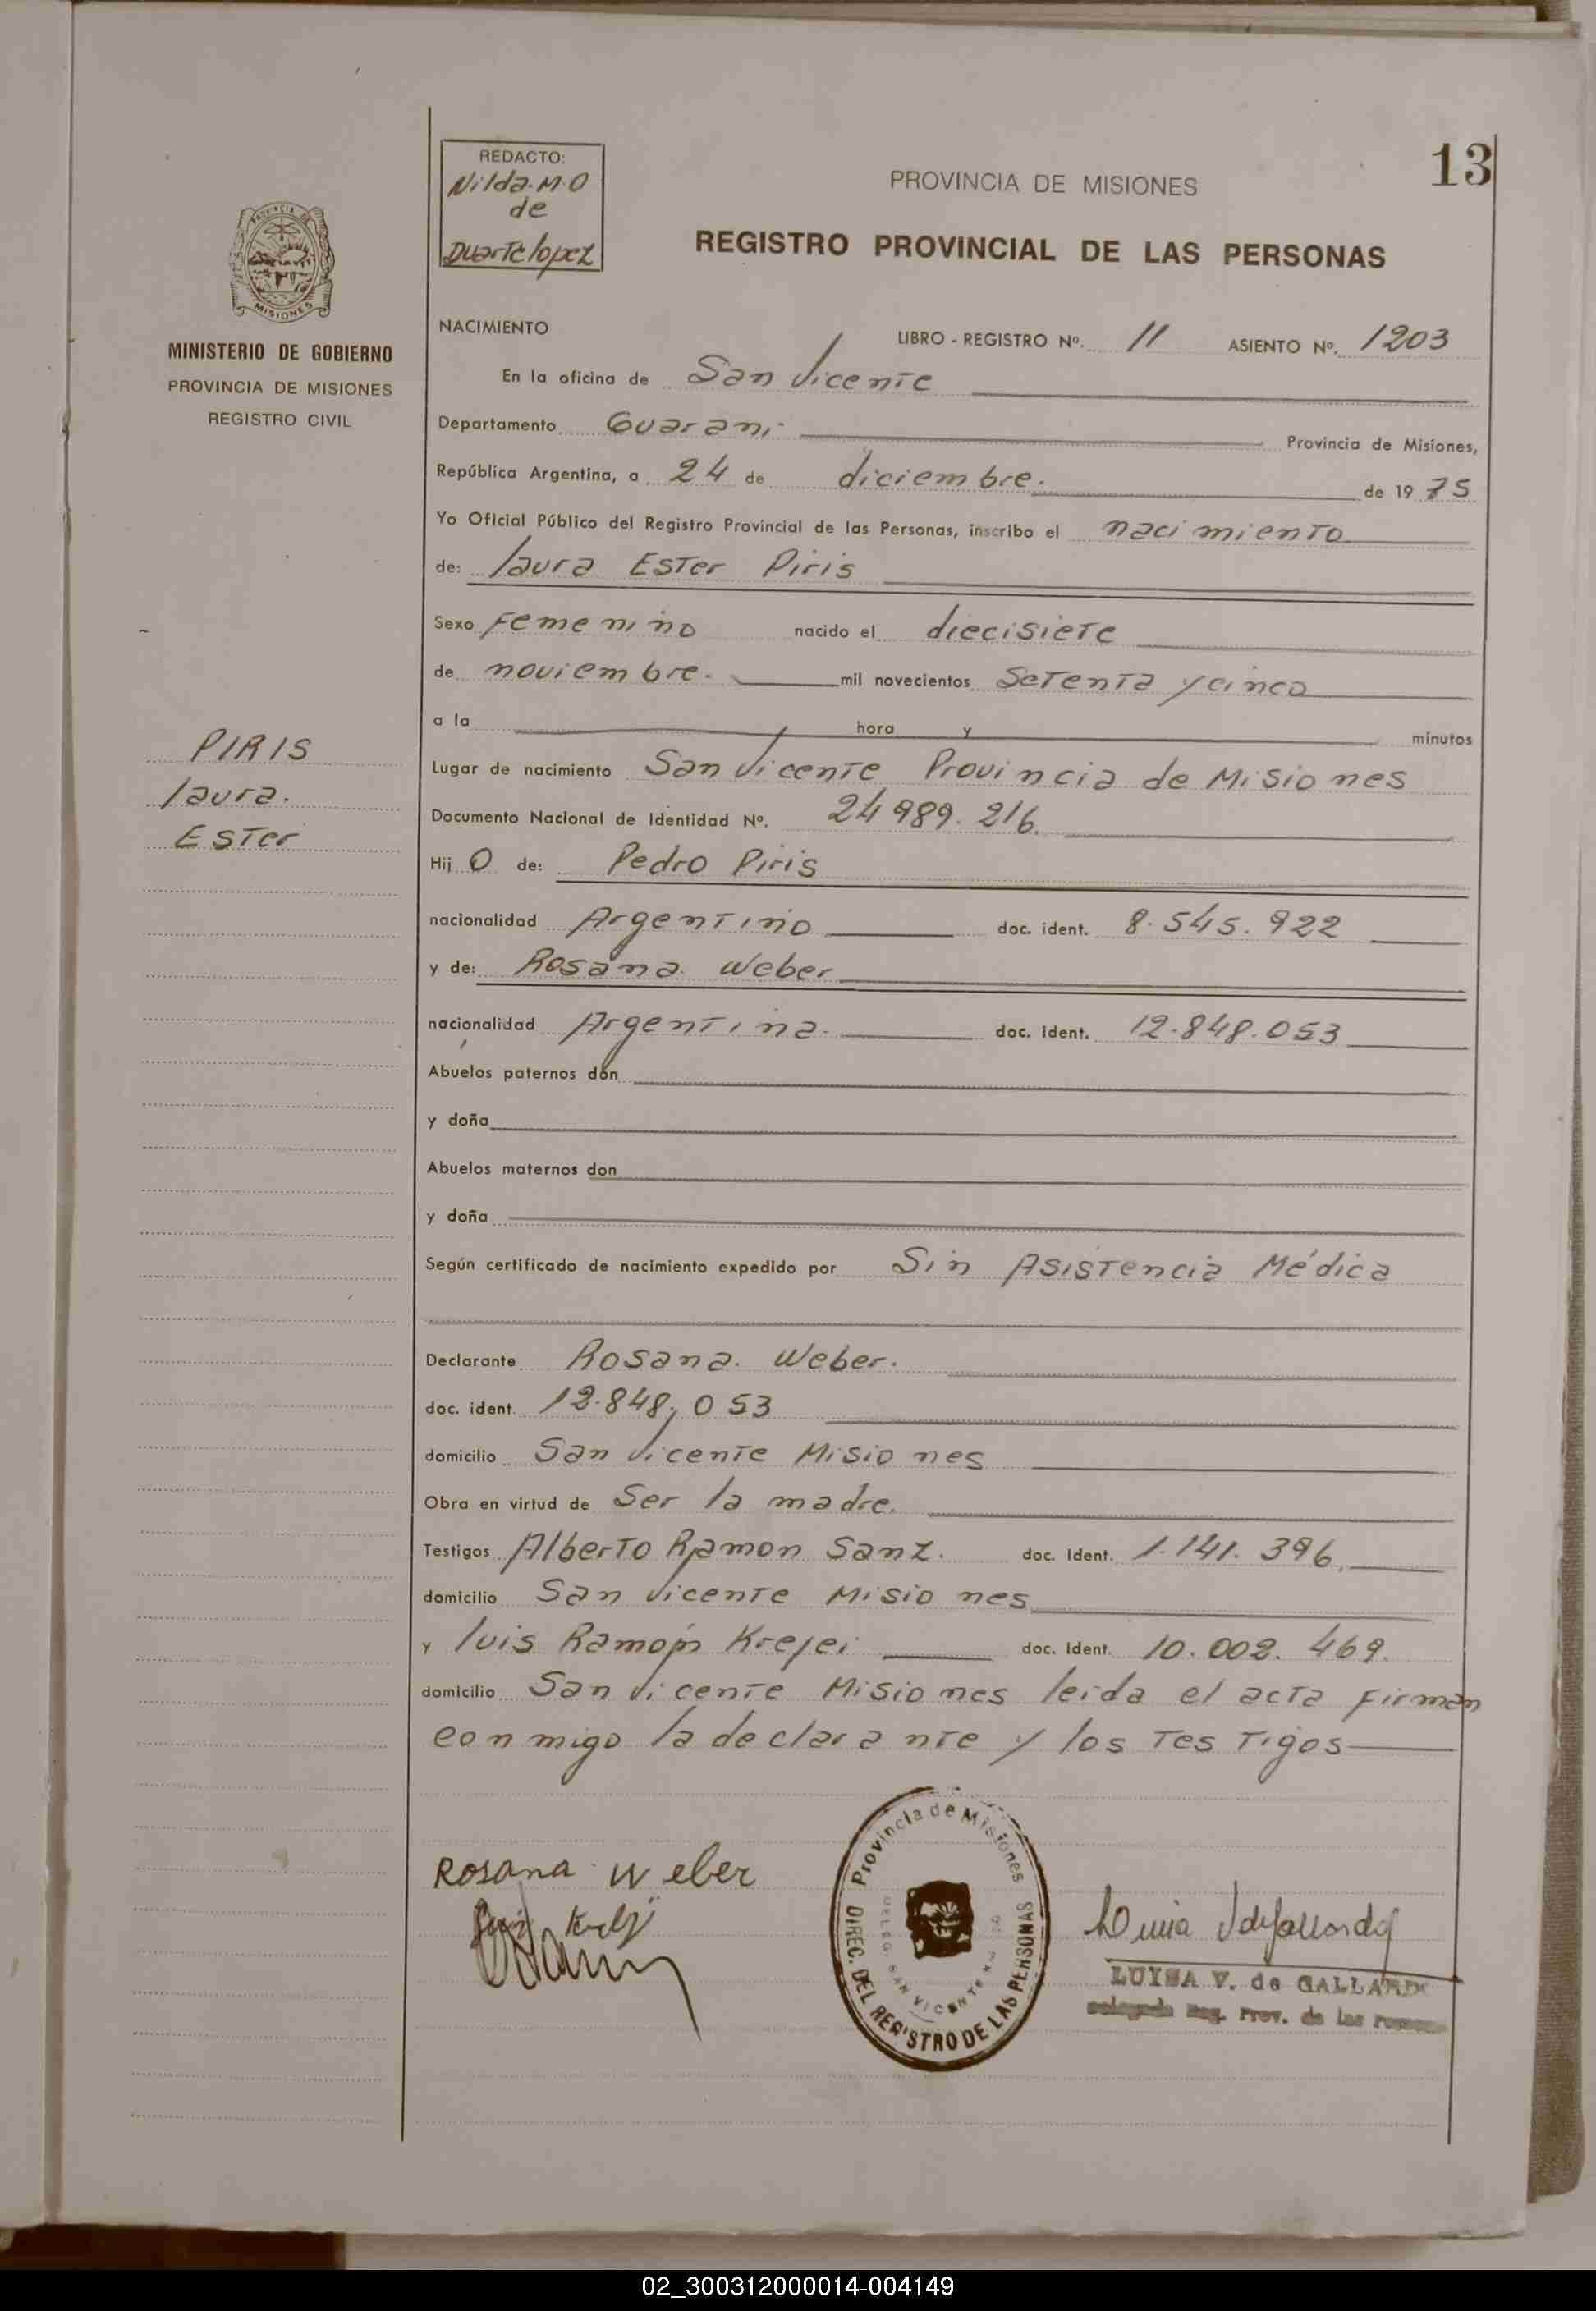 13
REDACTO:
Nilda.M.O
de
Duarte lopez
PROVINCIA DE MISIONES
REGISTRO PROVINCIAL DE LAS PERSONAS
PROVINCIA DE
MISIONES
MINISTERIO DE GOBIERNO
PROVINCIA DE MISIONES
REGISTRO CIVIL
NACIMIENTO LIBRO - REGISTRO Nº. 11 ASIENTO Nº. 1203
En la oficina de San Vicente
Departamento Guarani Provincia de Misiones,
República Argentina, a 24 de diciembre. de 1975
Yo Oficial Público del Registro Provincial de las Personas, inscribo el nacimiento
de: laura Ester Piris
Sexo Femenino nacido el diecisiete
de noviembre. mil novecientos Setenta y cinco
a la hora y minutos
PIRIS
laura.
Ester
Lugar de nacimiento San Vicente Provincia de Misiones
Documento Nacional de Identidad Nº. 24 989. 216.
Hij O de: Pedro Piris
nacionalidad Argentino doc. ident. 8.545.922
y de: Rosana Weber
nacionalidad Argentina. doc. ident. 12.848.053
Abuelos paternos don
y doña
Abuelos maternos don
y doña
Según certificado de nacimiento expedido por Sin Asistencia Médica
Declarante Rosana. Weber.
doc. ident. 12.848.053
domicilio San Vicente Misiones
Obra en virtud de Ser la madre.
Testigos Alberto Ramon Sanz. doc. Ident. 1.141.396.
domicilio San Vicente Misiones
y luis Ramón Krejei doc. Ident. 10.002.469.
domicilio San Vicente Misiones leida el acta firman
conmigo la declarante y los Testigos
Rosana Weber
Provincia de Misiones
DIREC. DEL REGISTRO DE LAS PERSONAS
DELEG. SAN VICENTE
LUISA V. de GALLARDO
Delegada Reg. Prov. de las Personas
02_300312000014-004149